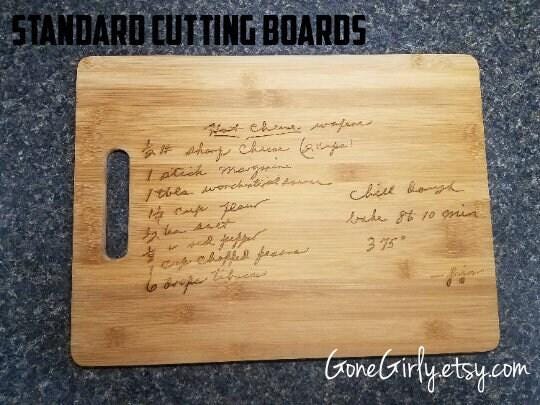 STANDARD CUTTING BOARDS
Hot Cheese wafers
½ # sharp Cheese (2 cups)
1 stick margarine
1 tbls worchestershire
1½ cup flour
½ tea salt
¼ " red pepper
1 cup chopped pecans
6 drops tabasco
Chill Dough
bake 8 to 10 min
375°
GoneGirly.etsy.com